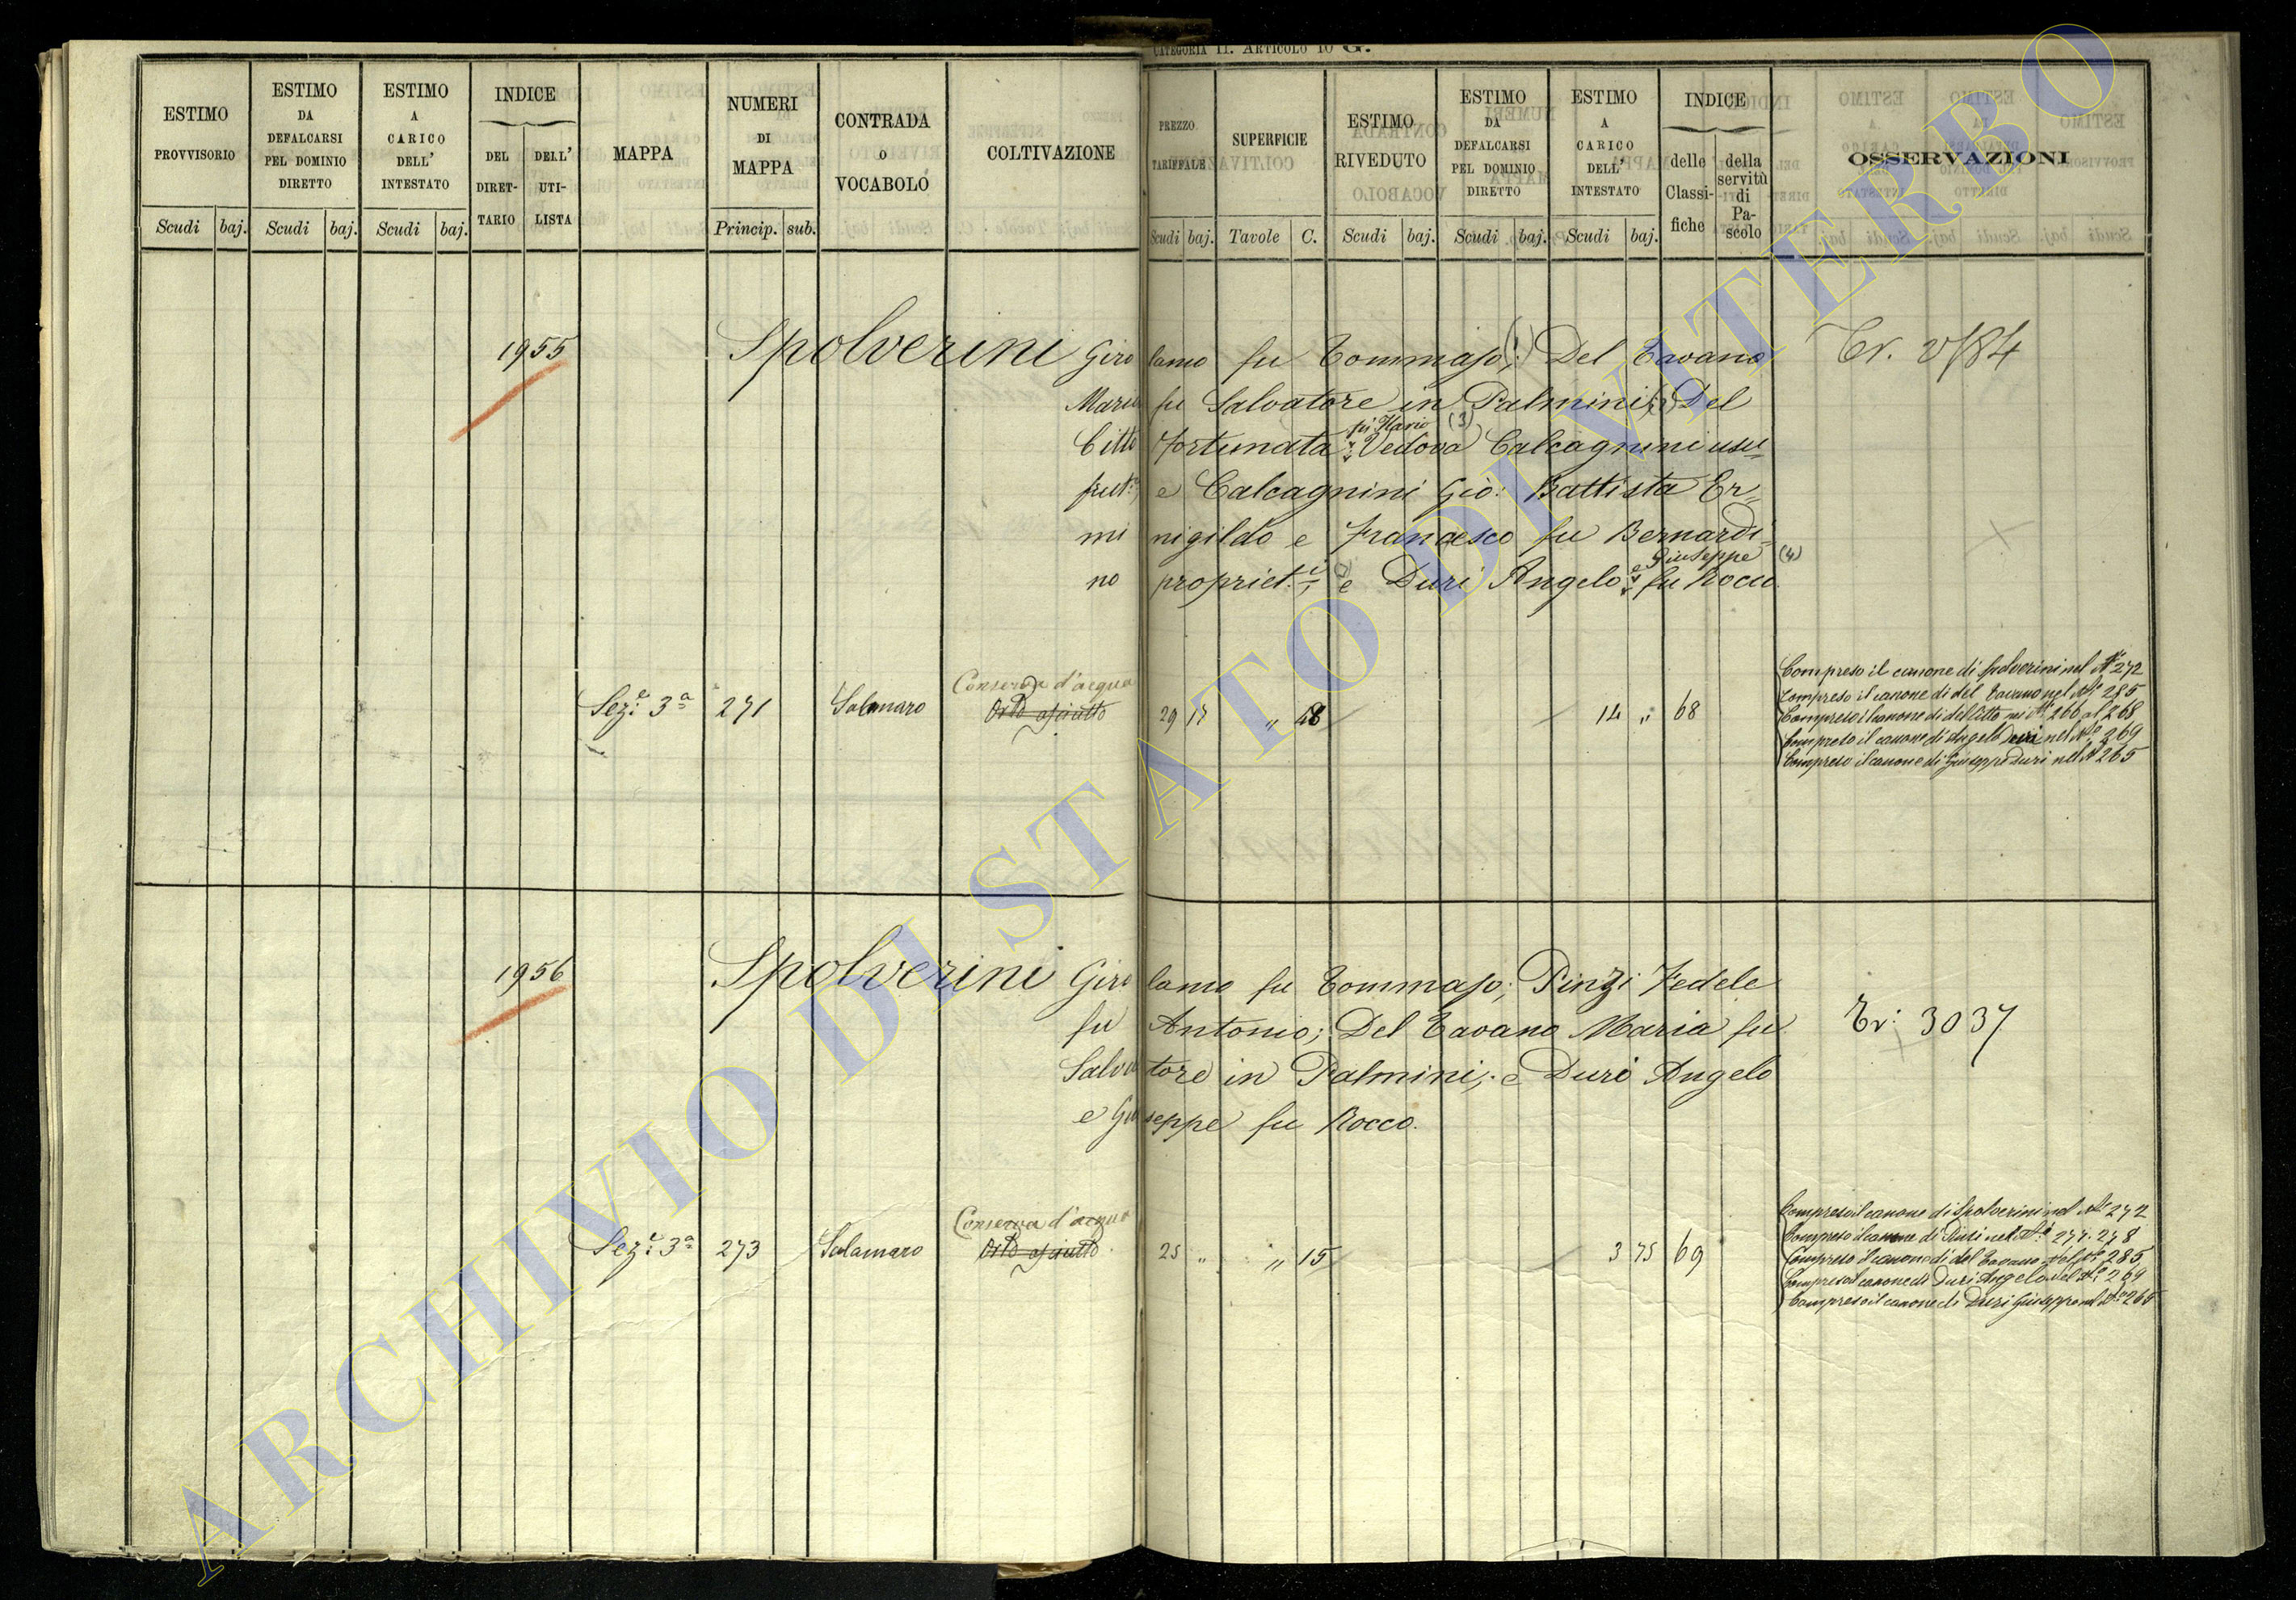 CATEGORIA II. ARTICOLO 10 G.
ESTIMO PROVVISORIO Scudi baj.
ESTIMO DA DEFALCARSI PEL DOMINIO DIRETTO Scudi baj.
ESTIMO A CARICO DELL' INTESTATO Scudi baj.
INDICE DEL DIRET-TARIO DELL' UTI-LISTA
MAPPA
NUMERI DI MAPPA Princip. sub.
CONTRADA O VOCABOLO
COLTIVAZIONE
PREZZO TARIFFALE Scudi baj.
SUPERFICIE Tavole C.
ESTIMO RIVEDUTO Scudi baj.
ESTIMO DA DEFALCARSI PEL DOMINIO DIRETTO Scudi baj.
ESTIMO A CARICO DELL' INTESTATO Scudi baj.
INDICE delle Classi-fiche della servitù di Pa-scolo
OSSERVAZIONI
1955 Spolverini Girolamo fu Tommaso; (1) Del Tavano
Maria fu Salvatore in Palmini; Del
fu Ilario (3)
Citto Fortunata Vedova Calcagnini usu=
frut.a e Calcagnini Gio: Battista Er=
minigildo e Francesco fu Bernardi=
e Giuseppe (4)
no propriet.i; e Duri Angelo fu Rocco
Sez.e 3a 271 Salamaro Conserva d'acqua
Orto asciutto 29 17 " 48 14 " 68
Compreso il canone di Spolverini nel No 272
Compreso il canone di del Tavano nel No 285
Compreso il canone di del Citto nei Ni 266 al 268
Compreso il canone di Angelo Duri nel No 269
Compreso il canone di Giuseppe Duri nel No 265
1956 Spolverini Girolamo fu Tommaso; Pinzi Fedele
fu Antonio; Del Tavano Maria fu Tr: 3037
Salvatore in Palmini; e Duri Angelo
e Giuseppe fu Rocco.
Sez.e 3a 273 Salamaro Conserva d'acqua
Orto asciutto 25 " " 15 3 75 69
Compreso il canone di Spolverini nel No 272
Compreso il canone di Pinzi nel Ni 277. 278
Compreso il canone di del Tavano nel No 285
Compreso il canone di Duri Angelo nel No 269
Compreso il canone di Duri Giuseppe nel No 265
ARCHIVIO DI STATO DI VITERBO